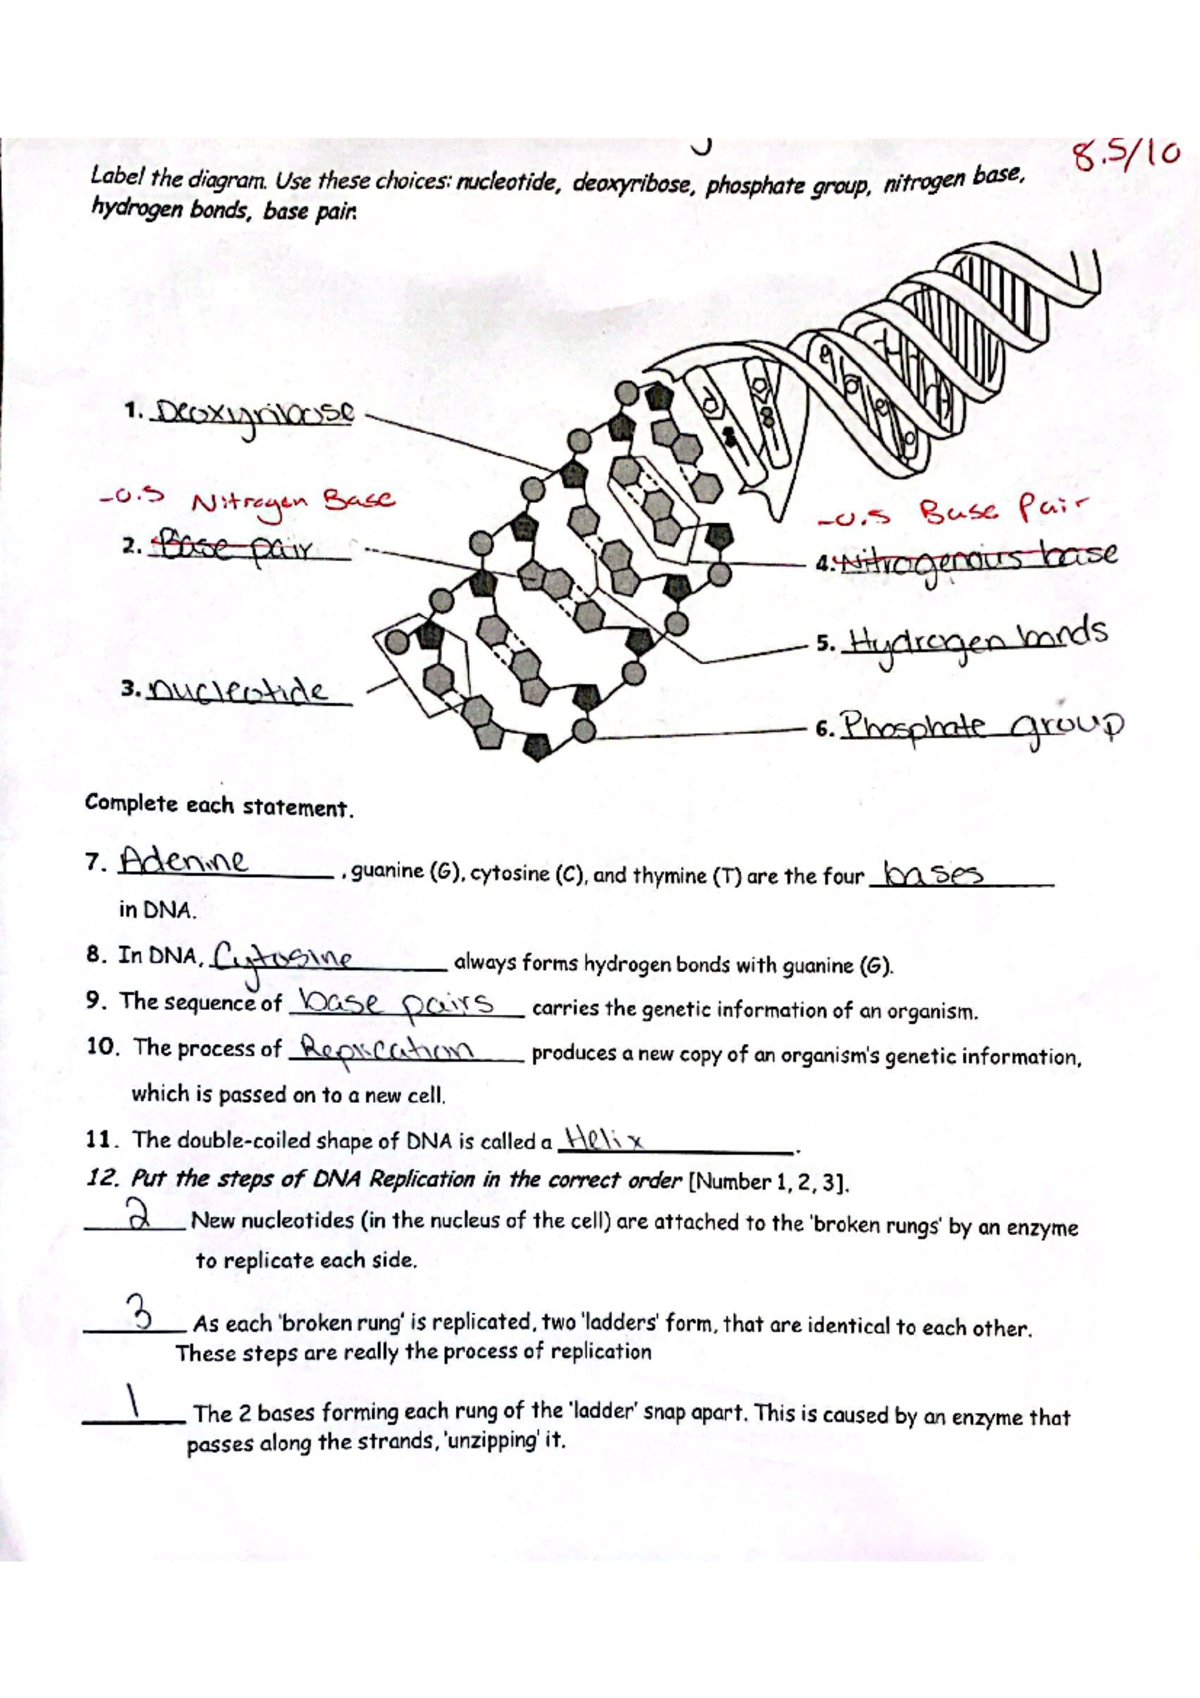 8.5/10
Label the diagram. Use these choices: nucleotide, deoxyribose, phosphate group, nitrogen base,
hydrogen bonds, base pair.
1. Deoxyribose
-0.5 Nitrogen Base
2. Base pair
3. nucleotide
-0.5 Base Pair
4. Nitrogenous base
5. Hydrogen bonds
6. Phosphate group
Complete each statement.
7. Adenine , guanine (G), cytosine (C), and thymine (T) are the four bases
in DNA.
8. In DNA, Cytosine always forms hydrogen bonds with guanine (G).
9. The sequence of base pairs carries the genetic information of an organism.
10. The process of Replication produces a new copy of an organism's genetic information,
which is passed on to a new cell.
11. The double-coiled shape of DNA is called a Helix.
12. Put the steps of DNA Replication in the correct order [Number 1, 2, 3].
2 New nucleotides (in the nucleus of the cell) are attached to the 'broken rungs' by an enzyme
to replicate each side.
3 As each 'broken rung' is replicated, two 'ladders' form, that are identical to each other.
These steps are really the process of replication
1 The 2 bases forming each rung of the 'ladder' snap apart. This is caused by an enzyme that
passes along the strands, 'unzipping' it.